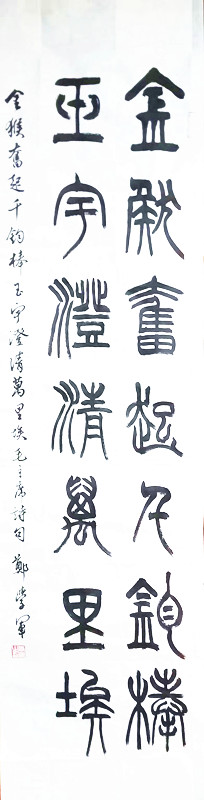 金猴奮起千鈞棒
玉宇澄清萬里埃
金猴奮起千鈞棒玉宇澄清萬里埃毛主席詩句 鄭學軍